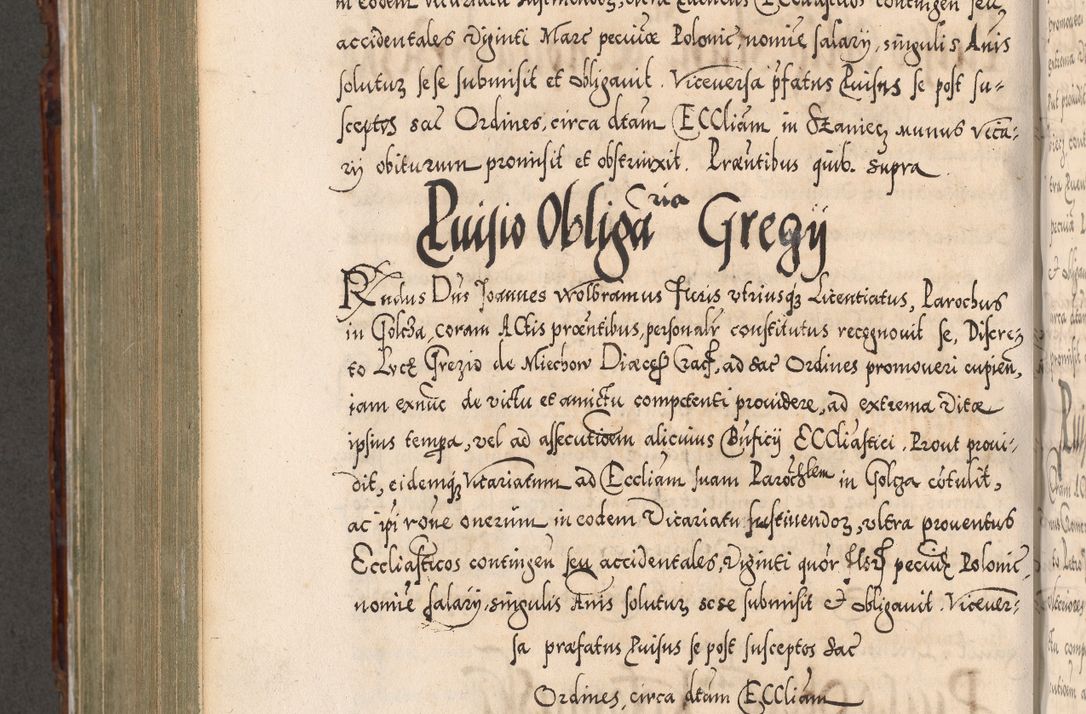 in eodem Vicariatu sustinendoz, ultra proventus Ecclasticos contingen seu
accidentales Viginti Marc pecuiæ Polonic, nomie salarij, singulis Anis
soluturz sese submisit et obligavit. Viceversa pfatus Puisus se post su-
sceptos sac Ordines, circa dtam ECCliam in Staniecz munus Vica-
rij obiturum promisit et obstrinxit. Præntibus quib. supra
Puisio Obligaria Gregij
Rndus Dns Joannes Wolbramus Juris utriusqz Licentiatus, Parochus
in Golcza, coram ACtis proentibus, personalr constitutus recognovit se, Discre-
to Greorio de Miechow Diæces Crac, ad sac Ordines promoveri cupien,
iam exnuc de victu et amictu competenti providere, ad extrema Vitæ
ipsius tempa, vel ad assecutioem alicuius Bnficij ECCliastici. Prout provi-
dit, eidemqz Vicariatum ad Eccliam suam Parochlem in Golcza cotulit,
ac ipi rone onerum in eodem Vicariatu sustinendoz, ultra proventus
Eccliasticos contingen seu accidentales, Viginti quor Mar pecuiæ Polonic,
nomie salarij, singulis Anis soluturz sese submisit et obligavit. Vicever-
sa præfatus Puisus se post susceptos sac
Ordines, circa dtam ECCliam